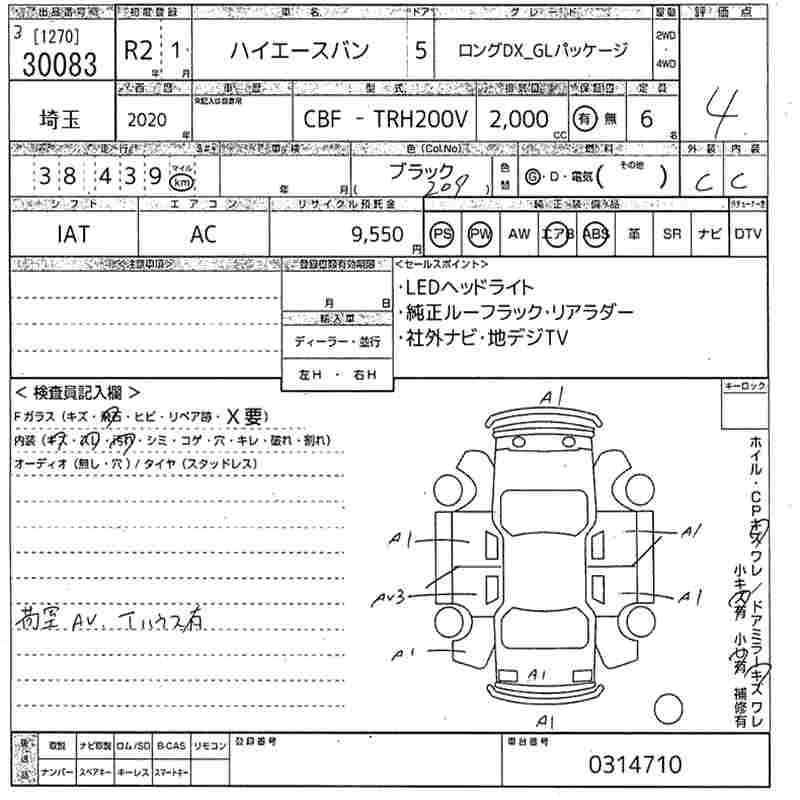 出品番号 初度登録 車名 ドア グレード 駆動 評価点
3 [1270]
30083 R2年 1月 ハイエースバン 5 ロングDX_GLパッケージ 2WD・4WD 4
西暦 車歴 型式 排気量 保証書 定員
埼玉 2020年 CBF - TRH200V 2,000CC 有 無 6名
走行 車検 色(Col.No) 燃料 外装 内装
38439 マイル km 年 月 ブラック ( 209 ) 色替 G・D・電気( その他 ) C C
シフト エアコン リサイクル預託金 純正装備品
IAT AC 9,550円 PS PW AW エアB ABS 革 SR ナビ DTV
<注意事項> 登録書類有効期限 <セールスポイント>
月 日
・LEDヘッドライト
・純正ルーフラック・リアラダー
・社外ナビ・地デジTV
輸入車
ディーラー・並行
左H ・ 右H
< 検査員記入欄 >
Fガラス (キズ・飛石・ヒビ・リペア跡・X要)
内装 (キズ・スレ・汚れ・シミ・コゲ・穴・キレ・破れ・割れ)
オーディオ (無し・穴) / タイヤ (スタッドレス)
荷室 AV、Tハウス有
キーロック
A1
A1 A1
AV3 A1
A1
A1
A1
ホイル・CPキズワレ/ドアミラーキズワレ
小キズ有 小凹有 補修有
後送品 取説 ナビ取説 ロム/SD B-CAS リモコン 登録番号 車台番号
ナンバー スペアキー キーレス スマートキー 0314710